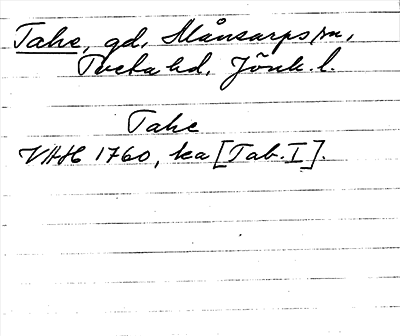 Tahe, gd, Månsarps sn,
Tveta hd, Jönk. l.
Tahe
VHH 1760, ka [Tab. I].